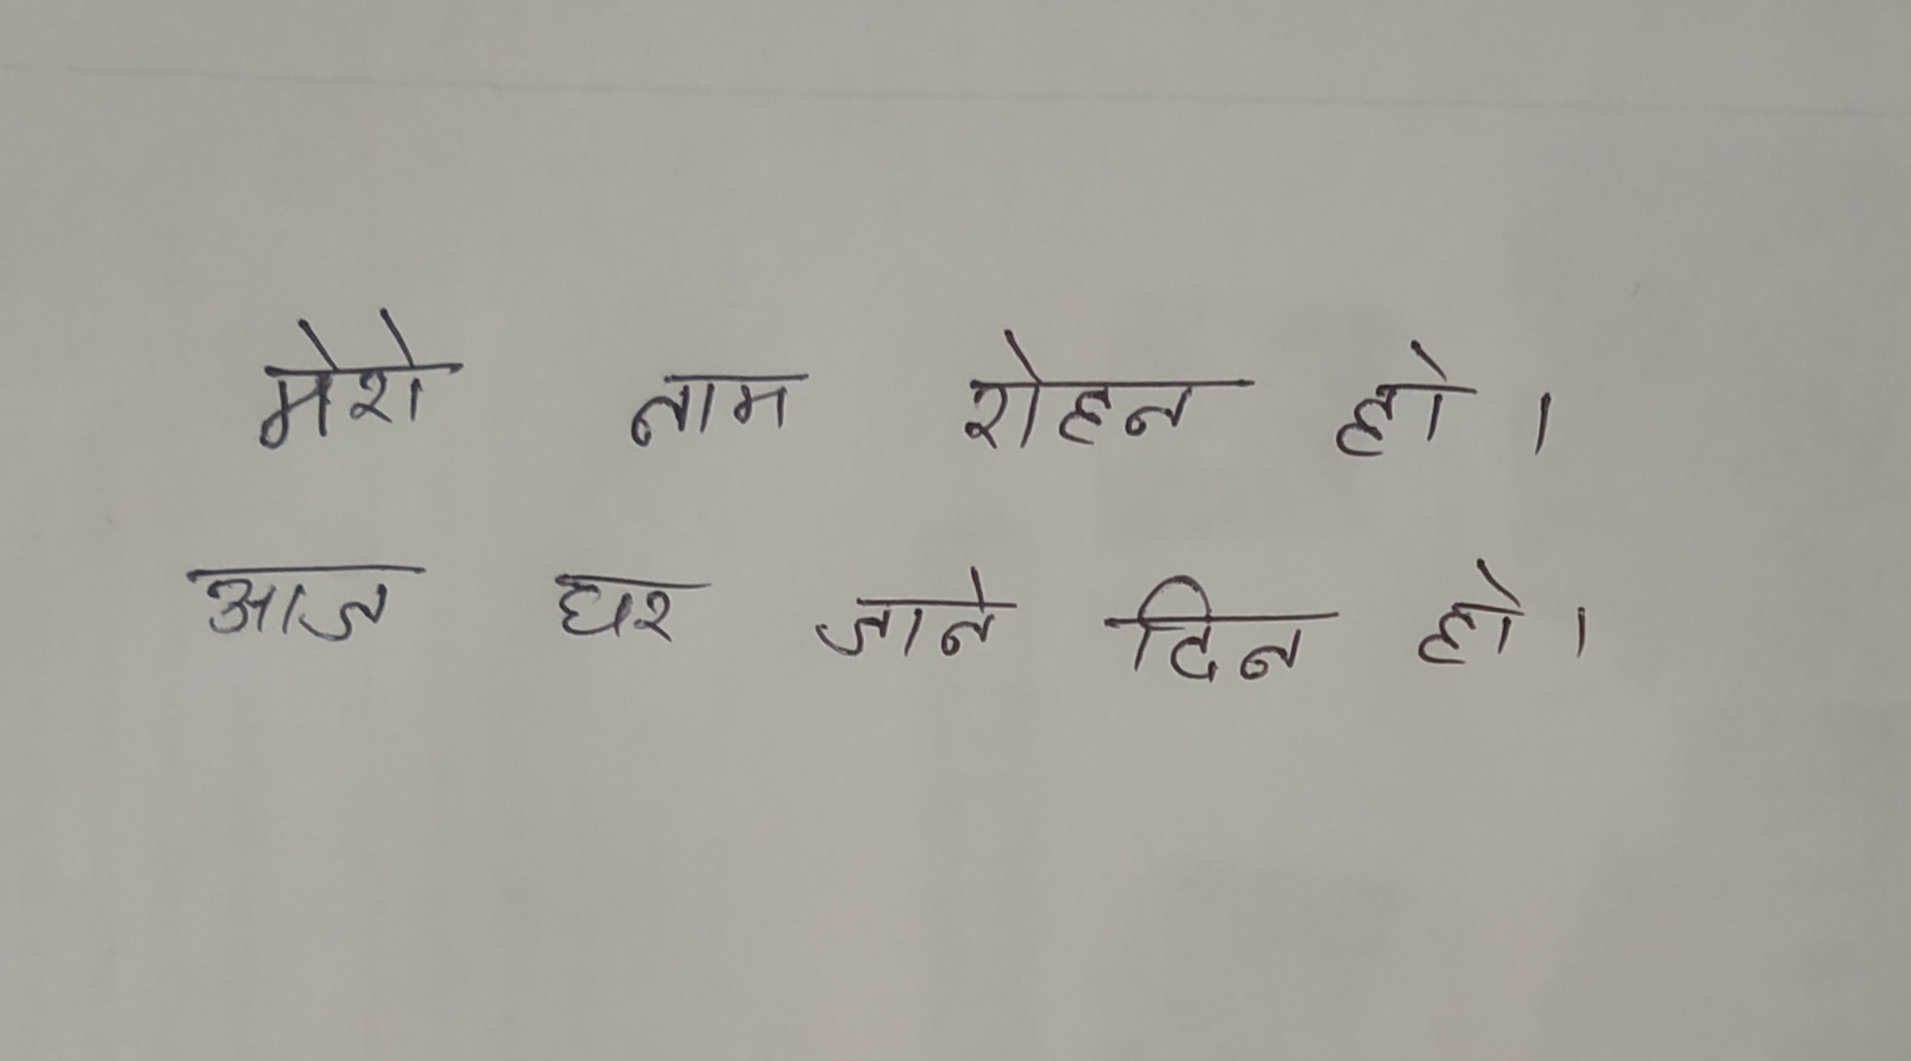 मेरो नाम रोहन हो ।
आज घर जाने दिन हो ।